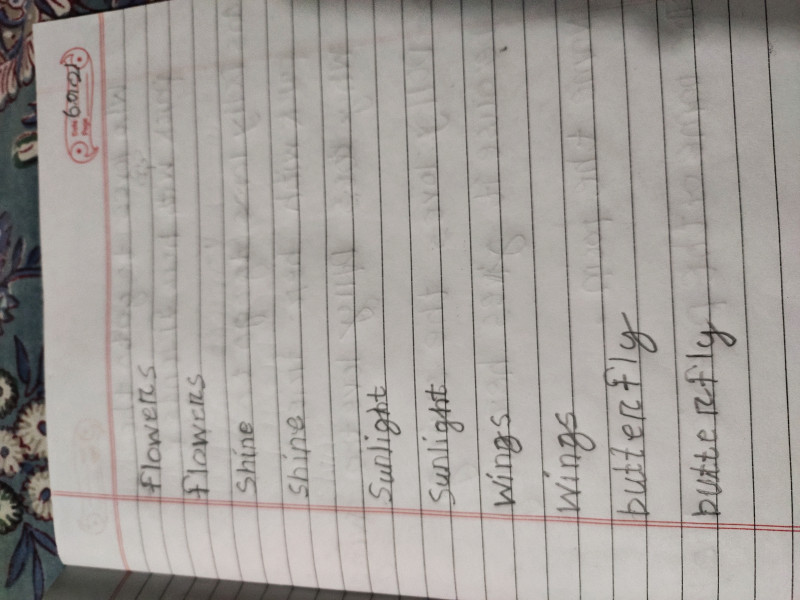 flowers
flowers
Shine
Shine
Sunlight
Sunlight
Wings
Wings
butterfly
butterfly